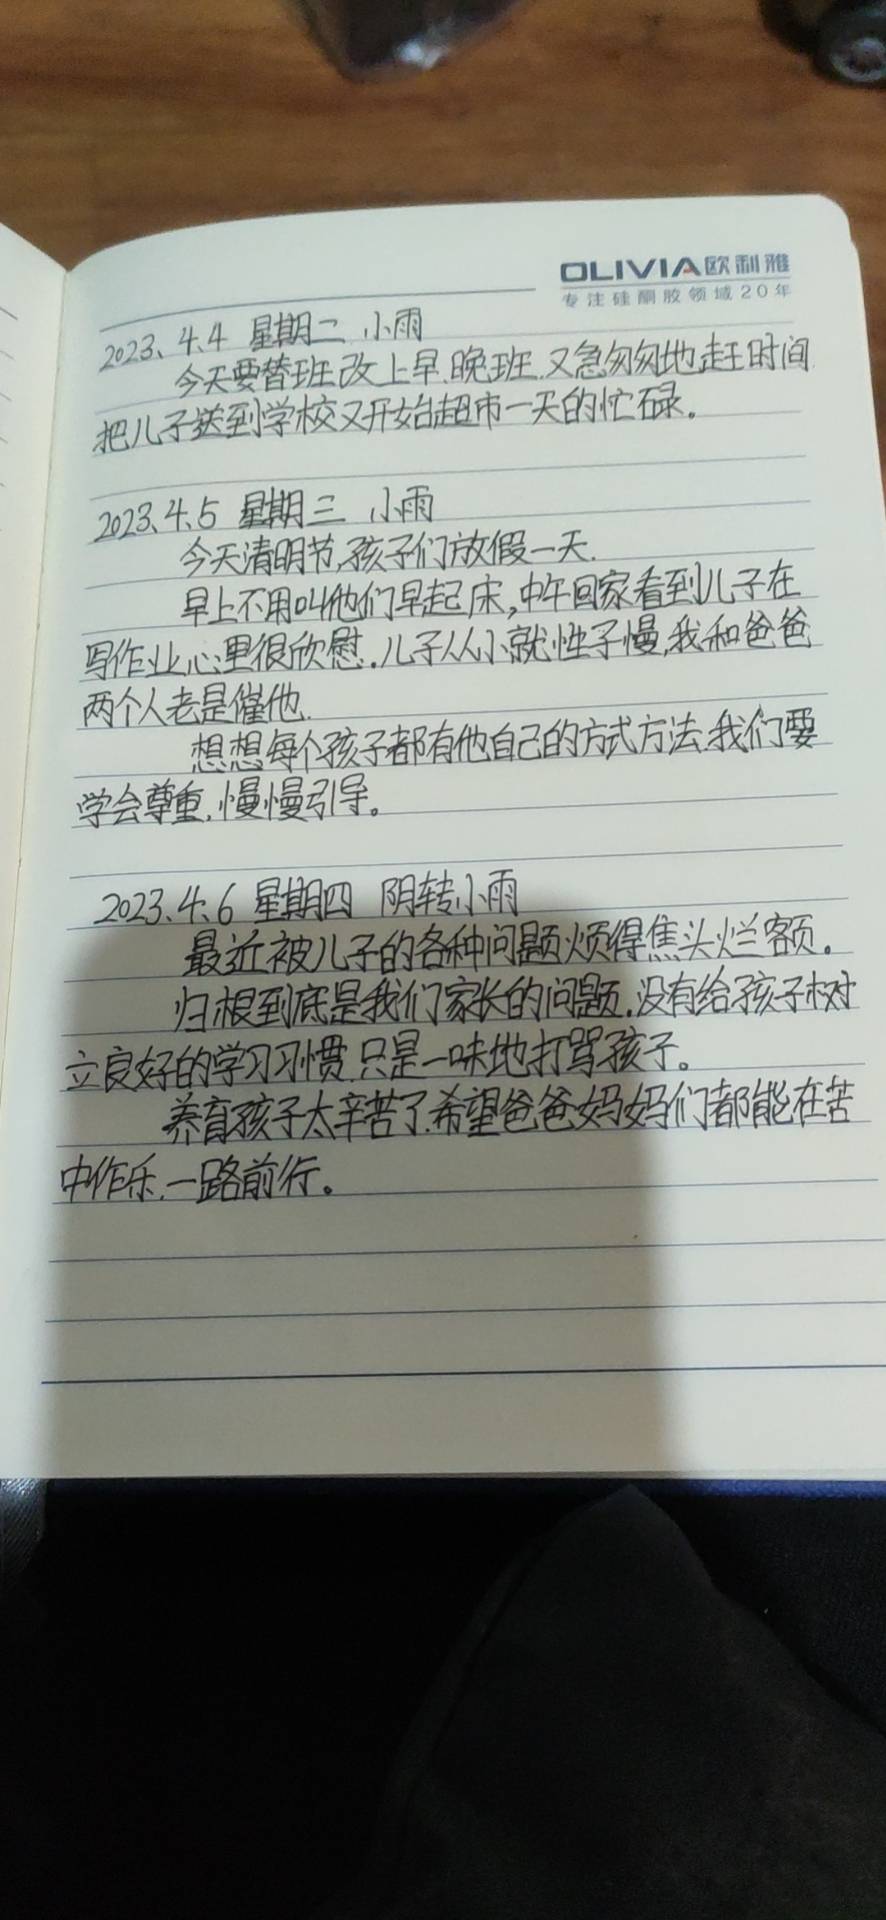 OLIVIA欧利雅
专注硅酮胶领域20年
2023、4.4 星期二 小雨
今天要替班.改上早.晚班.又急匆匆地赶时间
把儿子送到学校又开始超市一天的忙碌。
2023、4、5 星期三 小雨
今天清明节,孩子们放假一天.
早上不用叫他们早起床,中午回家看到儿子在
写作业心里很欣慰.儿子从小就性子慢,我和爸爸
两个人老是催他.
想想每个孩子都有他自己的方式方法.我们要
学会尊重,慢慢引导。
2023、4、6 星期四 阴转小雨
最近被儿子的各种问题烦得焦头烂额。
归根到底是我们家长的问题.没有给孩子树
立良好的学习习惯.只是一味地打骂孩子。
养育孩子太辛苦了.希望爸爸妈妈们都能在苦
中作乐.一路前行。